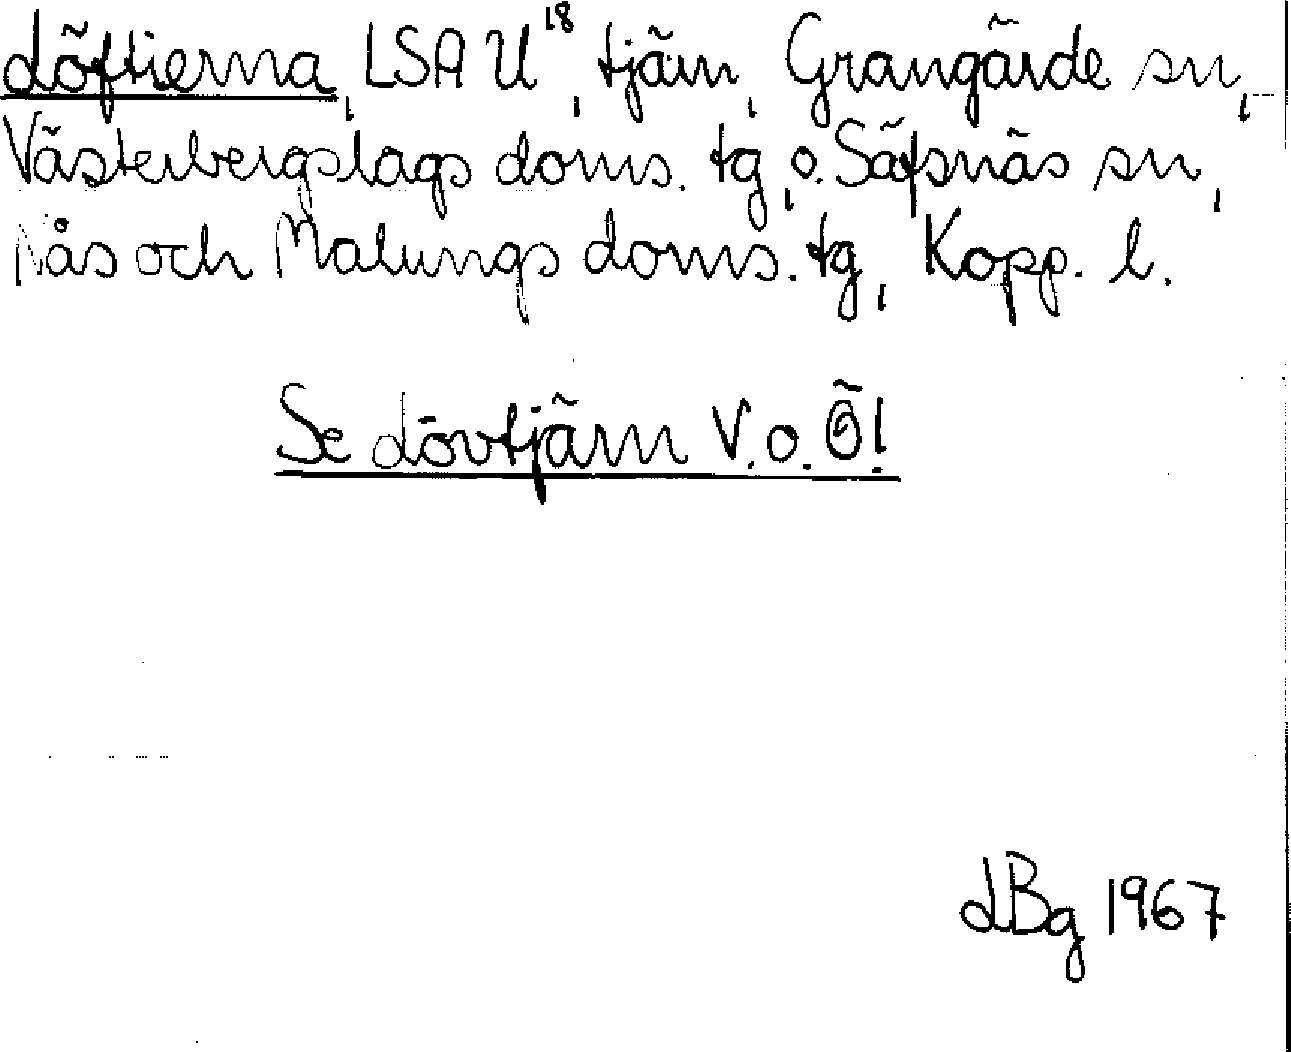 döftierna, LSA U¹⁸, tjärn, Grangärde sn,
Västerbergslags doms. tg, o. Säfsnäs sn,
Nås och Malungs doms. tg, Kopp. l.
Se dövtjärn V. o. Ö!
LBg 1967